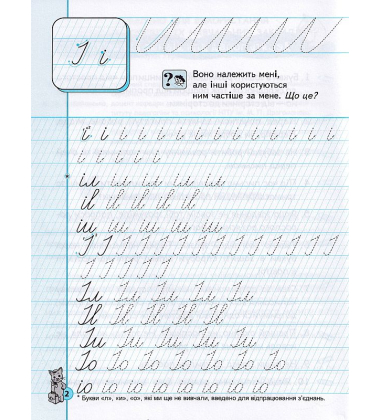 І і
Воно належить мені,
але інші користуються
ним частіше за мене. Що це?
і і і і і і і і і і і і і і і
і і і і і
* іл іл іл іл іл
ів ів ів ів ів
іш іш іш іш іш
І І І І І І І І І І І І І
І І І І І
Іл Іл Іл Іл Іл
Ів Ів Ів Ів Ів
Іи Іи Іи Іи Іи
Іо Іо Іо Іо Іо Іо Іо
іо іо іо іо іо іо іо
2
* Букви «л», «и», «о», які ми ще не вивчали, введено для відпрацювання з'єднань.